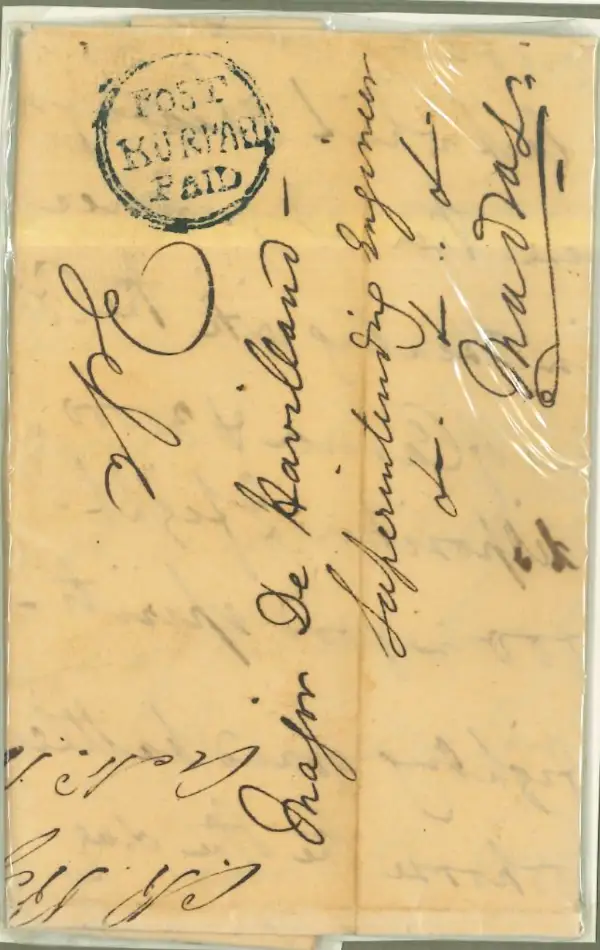 POST
KURPAH
PAID
To
Major De Havilland —
Superintending Engineer
&. &.. &.
Madras.